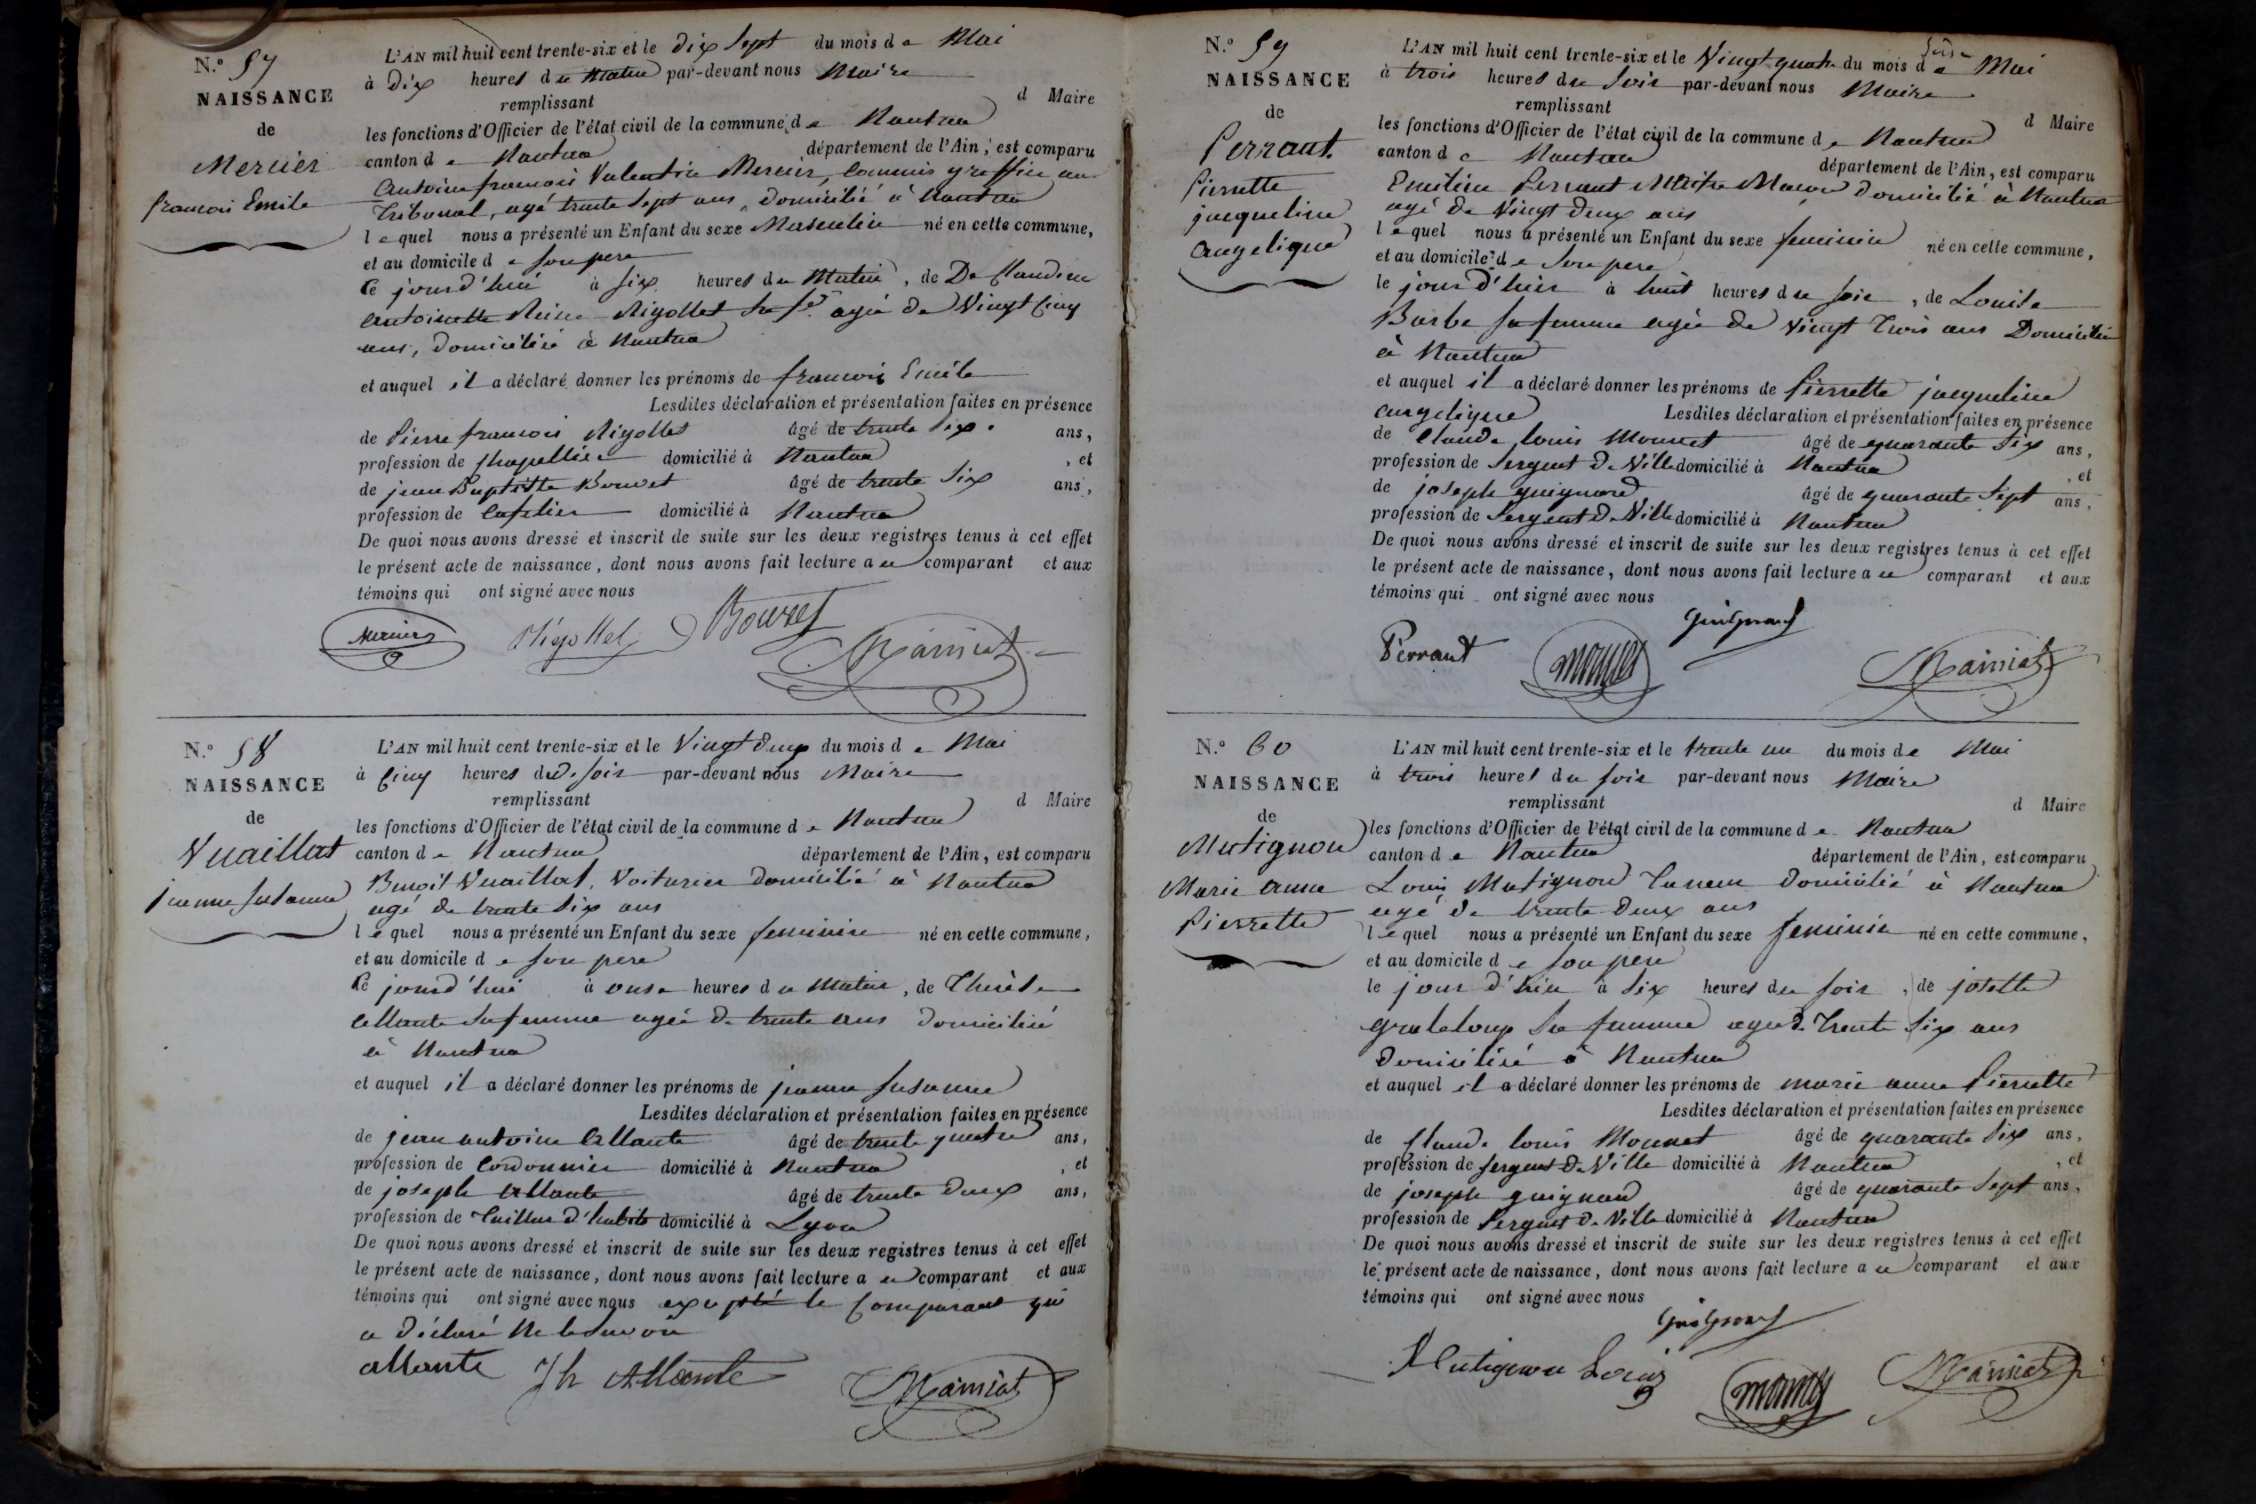 N.º 57
NAISSANCE
de
Mercier
francois Emile
L'AN mil huit cent trente-six et le dix Sept du mois de Mai
à Dix heures du Matin par-devant nous Maire
remplissant d Maire
les fonctions d'Officier de l'état civil de la commune de Nantua
canton de Nantua département de l'Ain, est comparu
Antoine francois Valentin Mercier, Commis greffier au
Tribunal, agé trente Sept ans, domicilié à Nantua
lequel nous a présenté un Enfant du sexe Masculin né en cette commune,
et au domicile de Son pere
Ce jourd'hui à Six heures du Matin, de De Claudine
Antoinette Reine Rigollet Sa fe. agée de Vingt Cinq
ans, domiciliée à Nantua
et auquel il a déclaré donner les prénoms de francois Emile
Lesdites déclaration et présentation faites en présence
de Pierre francois Rigollet âgé de trente Six ans,
profession de Chapellier domicilié à Nantua, et
de jean Baptiste Bouvet âgé de trente Six ans,
profession de Cafetier domicilié à Nantua
De quoi nous avons dressé et inscrit de suite sur les deux registres tenus à cet effet
le présent acte de naissance, dont nous avons fait lecture au comparant et aux
témoins qui ont signé avec nous
Mercier Rigollet Bouvet
N.º 58
NAISSANCE
de
Vuaillat
jeanne Susanne
L'AN mil huit cent trente-six et le Vingt deux du mois de Mai
à Cinq heures du Soir par-devant nous Maire
remplissant d Maire
les fonctions d'Officier de l'état civil de la commune de Nantua
canton de Nantua département de l'Ain, est comparu
Benoit Vuaillat, Voiturier domicilié à Nantua
agé de trente Six ans
lequel nous a présenté un Enfant du sexe feminin né en cette commune,
et au domicile de Son pere
Ce jourd'hui à onse heures du Matin, de Thérèse
Allante Sa femme agée de trente ans domiciliée
à Nantua
et auquel il a déclaré donner les prénoms de jeanne Susanne
Lesdites déclaration et présentation faites en présence
de jean antoine Allante âgé de trente quatre ans,
profession de Cordonnier domicilié à Nantua, et
de joseph Allante âgé de trente Deux ans,
profession de Tailleur d'habits domicilié à Lyon
De quoi nous avons dressé et inscrit de suite sur les deux registres tenus à cet effet
le présent acte de naissance, dont nous avons fait lecture au comparant et aux
témoins qui ont signé avec nous excepté le Comparant qui
a Déclaré Ne le Savoir
allante Jh Allante
N.º 59
NAISSANCE
de
Perraut
Pierrette
jacqueline
angelique
L'AN mil huit cent trente-six et le Vingt quatre du mois de Mai
à trois heures du Soir par-devant nous Maire
remplissant d Maire
les fonctions d'Officier de l'état civil de la commune de Nantua
canton de Nantua département de l'Ain, est comparu
Emilien Perraut Maitre Maçon domicilié à Nantua
agé de Vingt deux ans
lequel nous a présenté un Enfant du sexe feminin né en cette commune,
et au domicile de Son pere
le jour d'hier à huit heures du Soir, de Louise
Barbe Sa femme agée de Vingt Trois ans Domiciliée
à Nantua
et auquel il a déclaré donner les prénoms de Pierrette jacqueline
angelique Lesdites déclaration et présentation faites en présence
de Claude Louis Mounet âgé de quarante Six ans,
profession de Sergent de Ville domicilié à Nantua, et
de joseph guignard âgé de quarante Sept ans,
profession de Sergent de Ville domicilié à Nantua
De quoi nous avons dressé et inscrit de suite sur les deux registres tenus à cet effet
le présent acte de naissance, dont nous avons fait lecture au comparant et aux
témoins qui ont signé avec nous
Guignard
Perraut
N.º 60
NAISSANCE
de
Mutignon
Marie anne
Pierrette
L'AN mil huit cent trente-six et le trente un du mois de Mai
à trois heures du Soir par-devant nous Maire
remplissant d Maire
les fonctions d'Officier de l'état civil de la commune de Nantua
canton de Nantua département de l'Ain, est comparu
Louis Mutignon Taneur domicilié à Nantua
agé de trente Deux ans
lequel nous a présenté un Enfant du sexe feminin né en cette commune,
et au domicile de Son pere
le jour d'hier à Six heures du Soir, de josette
grateloup Sa femme agée de Trente Six ans
Domiciliée à Nantua
et auquel il a déclaré donner les prénoms de marie anne Pierrette
Lesdites déclaration et présentation faites en présence
de Claude Louis Mounet âgé de quarante Six ans,
profession de Sergent de Ville domicilié à Nantua, et
de joseph guignard âgé de quarante Sept ans,
profession de Sergent de Ville domicilié à Nantua
De quoi nous avons dressé et inscrit de suite sur les deux registres tenus à cet effet
le présent acte de naissance, dont nous avons fait lecture au comparant et aux
témoins qui ont signé avec nous
Guignard
Mutignon Louis